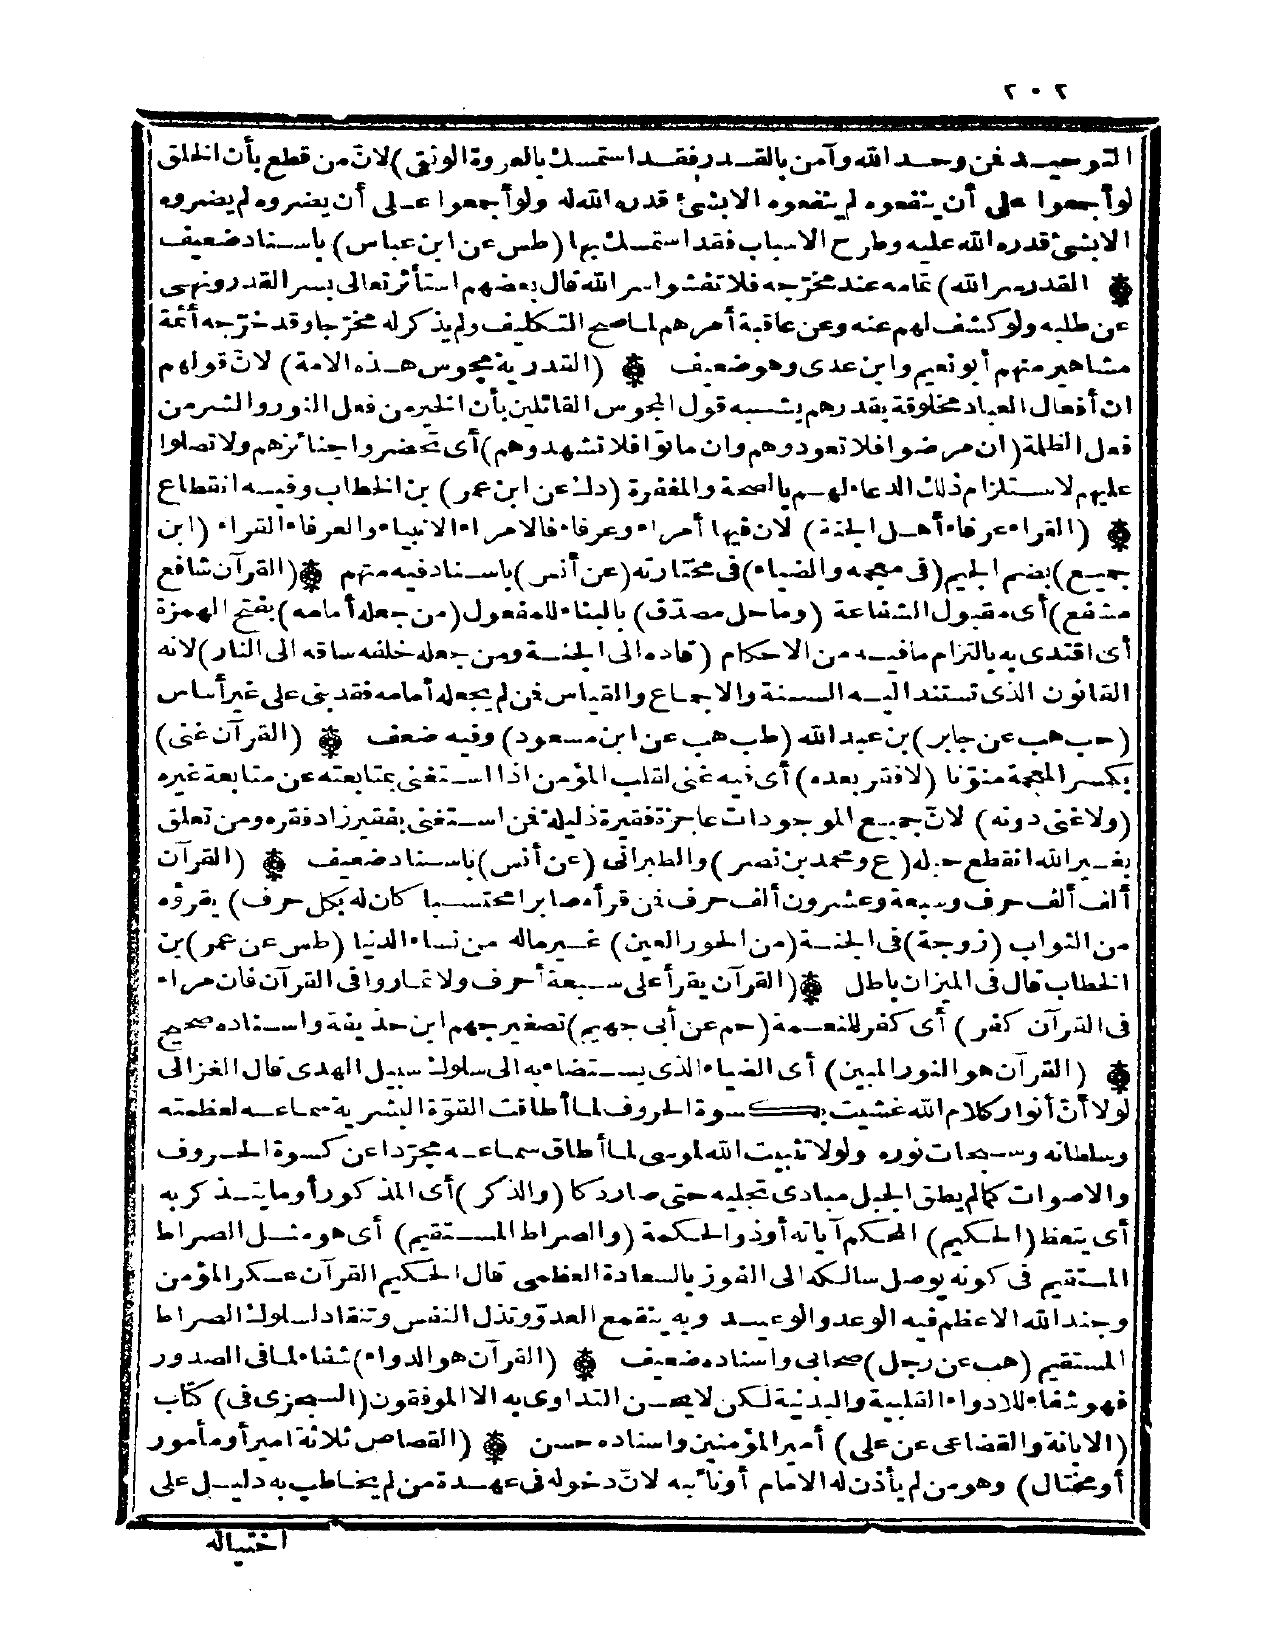 ٢٠٢
التوحيد فمن وحد الله وآمن بالقدر فقد استمسك بالعروة الوثقى) لانّ من قطع بأن الخلق
لو أجمعوا على أن ينفعوه لم ينفعوه الا بشئ قدره الله له ولو أجمعوا على أن يضروه لم يضروه
الا بشئ قدره الله عليه وطرح الاسباب فقد استمسك بها (طس عن ابن عباس) باسناد ضعيف
۞ القدر سر الله) تمامه عند مخرّجه فلا تفشوا سر الله قال بعضهم استأثر تعالى بسر القدر ونهى
عن طلبه ولو كشف لهم عنه وعن عاقبة أمرهم لما صح التكليف ولم يذكر له مخرّجا وقد خرّجه أئمة
مشاهير منهم أبو نعيم وابن عدى وهو ضعيف ۞ (القدرية مجوس هذه الامة) لانّ قولهم
ان أفعال العباد مخلوقة بقدرهم يشبه قول المجوس القائلين بأن الخير من فعل النور والشر من
فعل الظلمة (ان مرضوا فلا تعودوهم وان ماتوا فلا تشهدوهم) أى تحضروا جنائزهم ولا تصلوا
عليهم لاستلزام ذلك الدعاء لهم بالصحة والمغفرة (دك عن ابن عمر) بن الخطاب وفيه انقطاع
۞ (القراء عرفاء أهل الجنة) لان فيها أمراء وعرفاء فالامراء الانبياء والعرفاء القراء (ابن
جميع) بضم الجيم (فى معجمه والضياء) فى مختارته (عن أنس) باسناد فيه متهم ۞ (القرآن شافع
مشفع) أى مقبول الشفاعة (وماحل مصدّق) بالبناء للمفعول (من جعله أمامه) بفتح الهمزة
أى اقتدى به بالتزام ما فيه من الاحكام (قاده الى الجنة ومن جعله خلفه ساقه الى النار) لانه
القانون الذى تستند اليه السنة والاجماع والقياس فمن لم يجعله أمامه فقد بنى على غير أساس
(حب هب عن جابر) بن عبد الله (طب هب عن ابن مسعود) وفيه ضعف ۞ (القرآن غنى)
بكسر المعجمة منوّنا (لا فقر بعده) أى فيه غنى لقلب المؤمن اذا استغنى بمتابعته عن متابعة غيره
(ولا غنى دونه) لانّ جميع الموجودات عاجزة فقيرة ذليلة فمن استغنى بفقير زاد فقره ومن تعلق
بغير الله انقطع حبله (ع ومحمد بن نصر) والطبرانى (عن أنس) باسناد ضعيف ۞ (القرآن
ألف ألف حرف وسبعة وعشرون ألف حرف فمن قرأه صابرا محتسبا كان له بكل حرف) يقرؤه
من الثواب (زوجة) فى الجنة (من الحور العين) غير ماله من نساء الدنيا (طس عن عمر) بن
الخطاب قال فى الميزان باطل ۞ (القرآن يقرأ على سبعة أحرف ولا تماروا فى القرآن فان مراء
فى القرآن كفر) أى كفر للنعمة (حم عن أبى جهيم) تصغير جهم ابن حذيفة واسناده صحيح
۞ (القرآن هو النور المبين) أى الضياء الذى يستضاء به الى سلوك سبيل الهدى قال الغزالى
لولا أنّ أنوار كلام الله غشيت بكسوة الحروف لما أطاقت القوّة البشرية سماعه لعظمته
وسلطانه وسبحات نوره ولولا تثبيت الله لموسى لما أطاق سماعه مجرّدا عن كسوة الحروف
والاصوات كما لم يطق الجبل مبادى تجليه حتى صار دكا (والذكر) أى المذكور أو ما يتذكر به
أى يتعظ (الحكيم) المحكم آياته أو ذو الحكمة (والصراط المستقيم) أى هو مثل الصراط
المستقيم فى كونه يوصل سالكه الى الفوز بالسعادة العظمى قال الحكيم القرآن عسكر المؤمن
وجند الله الاعظم فيه الوعد والوعيد وبه ينقمع العدوّ وتذل النفس وتنقاد لسلوك الصراط
المستقيم (هب عن رجل) صحابى واسناده ضعيف ۞ (القرآن هو الدواء) شفاء لما فى الصدور
فهو شفاء للادواء القلبية والبدنية لكن لا يحسن التداوى به الا الموفقون (السجزى فى) كتاب
(الابانة والقضاعى عن على) أمير المؤمنين واسناده حسن ۞ (القصاص ثلاثة أمير أو مأمور
أو مختال) وهو من لم يأذن له الامام أو نائبه لانّ دخوله فى عهدة من لم يخاطب به دليل على
اختياله